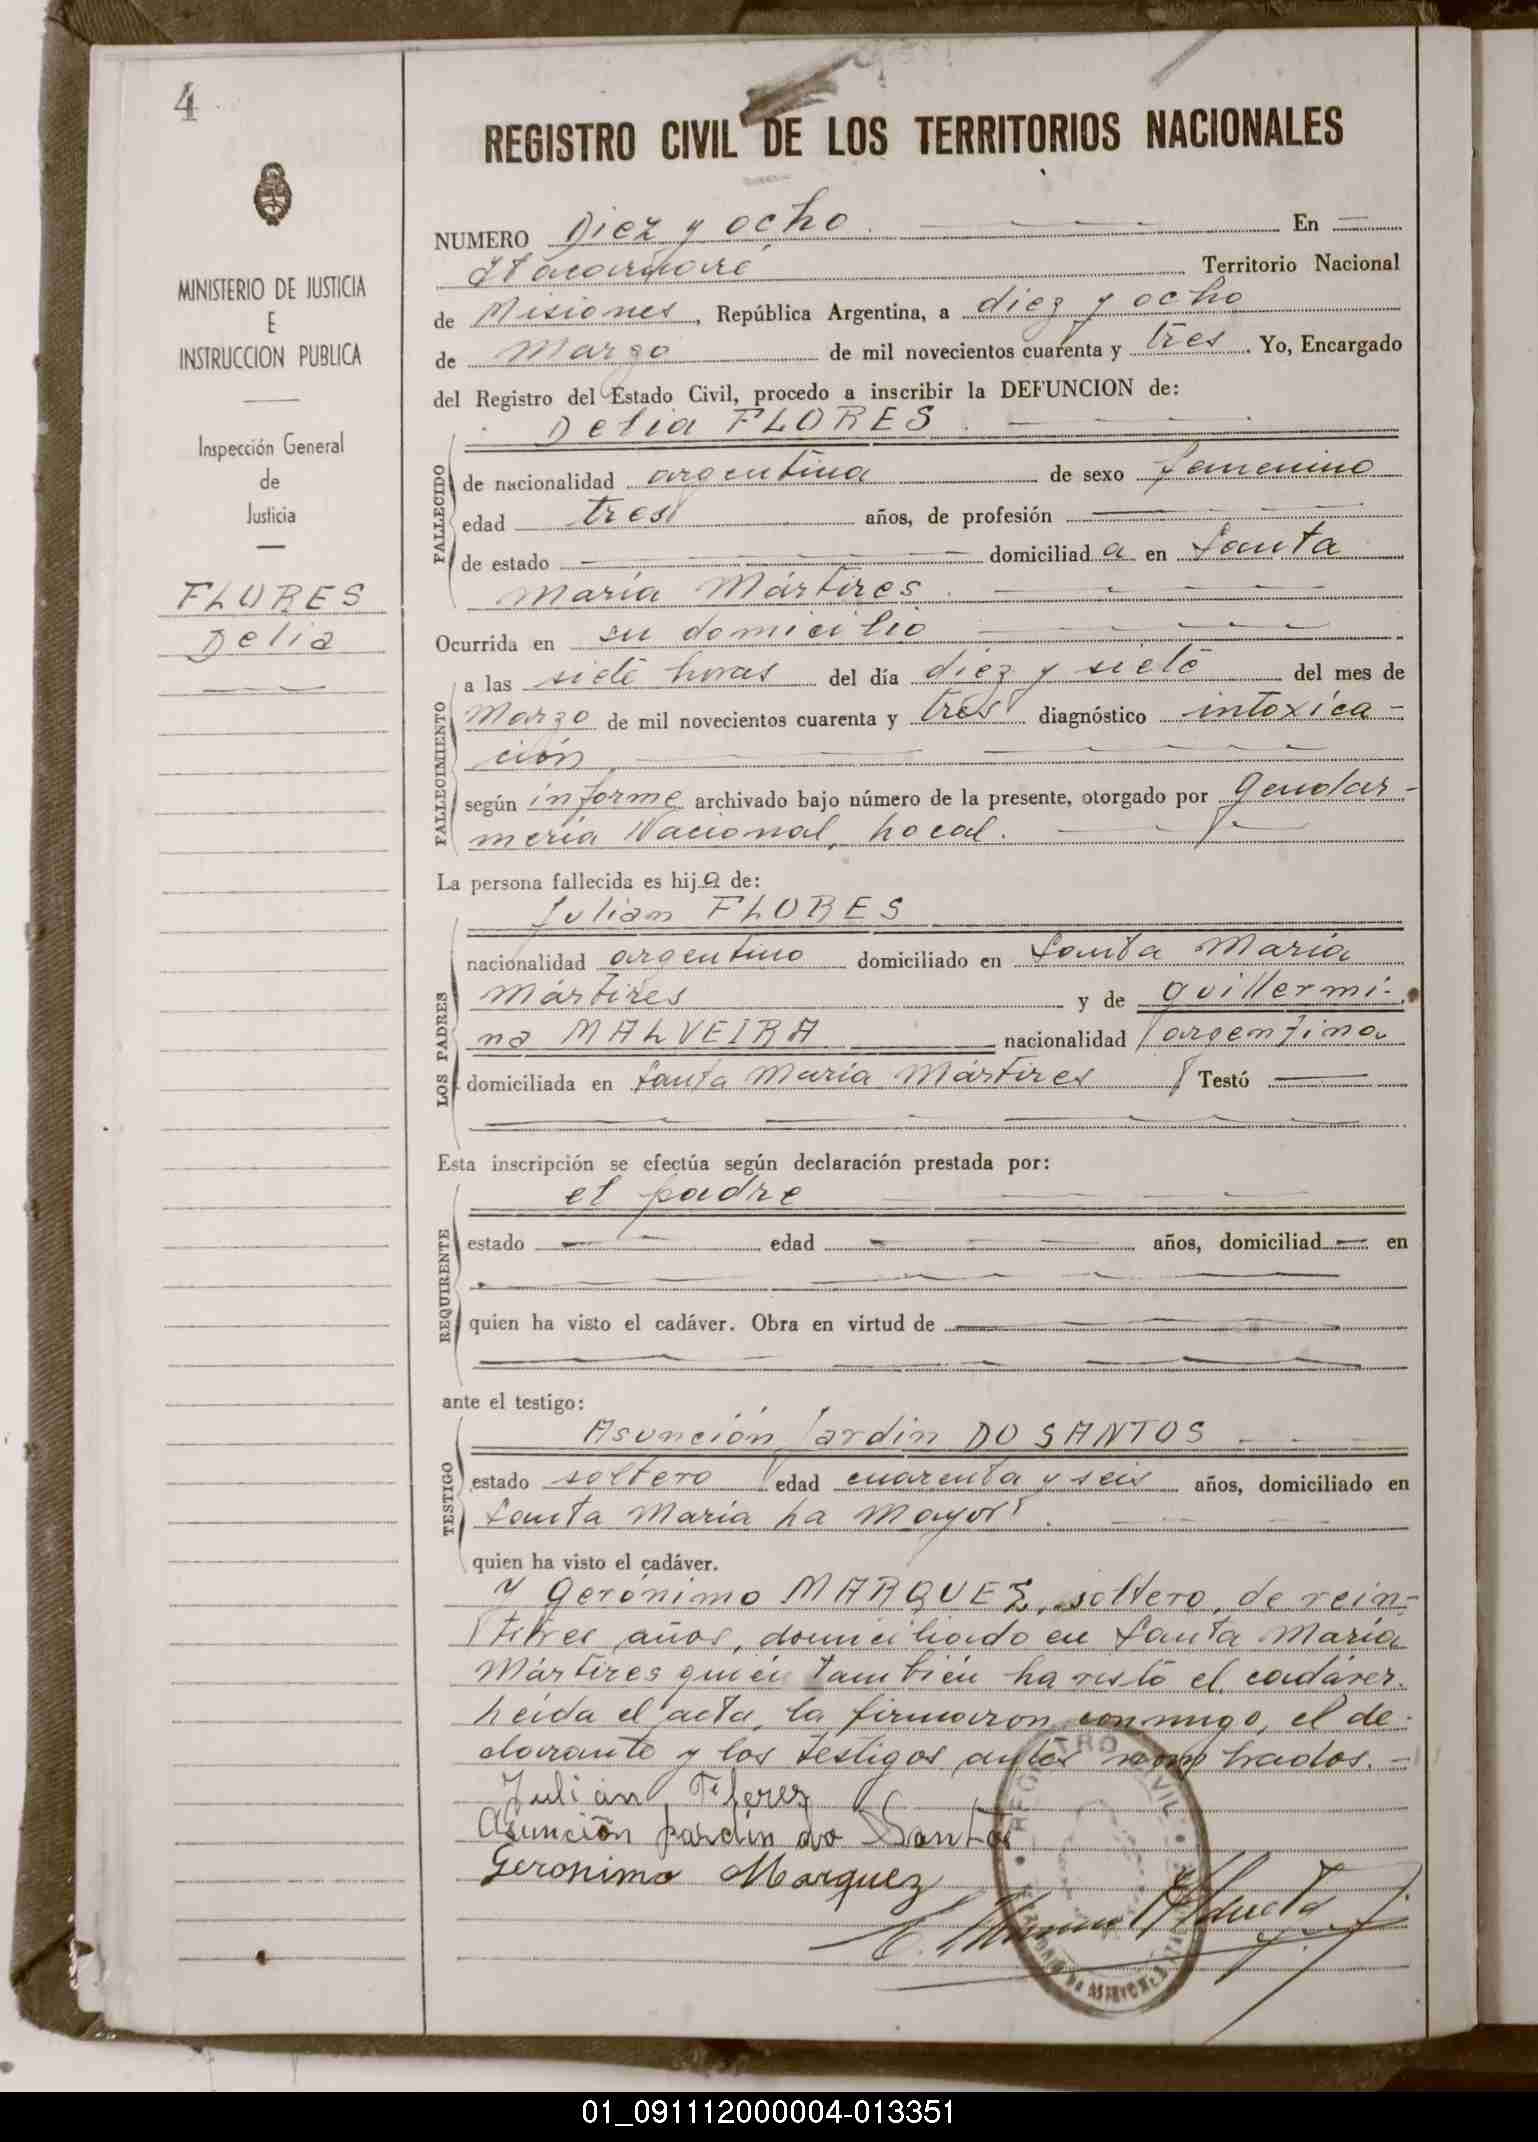 4
MINISTERIO DE JUSTICIA
E
INSTRUCCION PUBLICA
Inspección General
de
Justicia
FLORES
Delia
REGISTRO CIVIL DE LOS TERRITORIOS NACIONALES
NUMERO Diez y ocho. En
Itacaruaré Territorio Nacional
de Misiones, República Argentina, a diez y ocho
de Marzo de mil novecientos cuarenta y tres. Yo, Encargado
del Registro del Estado Civil, procedo a inscribir la DEFUNCION de:
Delia FLORES.
FALLECIDO
de nacionalidad argentina de sexo femenino
edad tres años, de profesión
de estado domiciliada en Santa
María Mártires.
Ocurrida en su domicilio
FALLECIMIENTO
a las siete horas del día diez y siete del mes de
Marzo de mil novecientos cuarenta y tres diagnóstico intoxica-
ción.
según informe archivado bajo número de la presente, otorgado por Gendar-
mería Nacional, Local.
La persona fallecida es hija de:
LOS PADRES
Julian FLORES
nacionalidad argentino domiciliado en Santa María
Mártires y de Guillermi-
na MALVEIRA nacionalidad argentina
domiciliada en Santa María Mártires Testó
Esta inscripción se efectúa según declaración prestada por:
REQUIRENTE
el padre
estado edad años, domiciliad en
quien ha visto el cadáver. Obra en virtud de
ante el testigo:
TESTIGO
Asunción Jardin DO SANTOS
estado soltero edad cuarenta y seis años, domiciliado en
Santa María La Mayor.
quien ha visto el cadáver.
y Gerónimo MARQUEZ, soltero, de vein-
titres años, domiciliado en Santa María
Mártires quien también ha visto el cadáver.
Leída el acta, la firmaron conmigo, el de-
clarante y los testigos antes nombrados. -
Julian Flerez
Asunción jardin do Santos
Geronimo Marquez
REGISTRO CIVIL
01_091112000004-013351